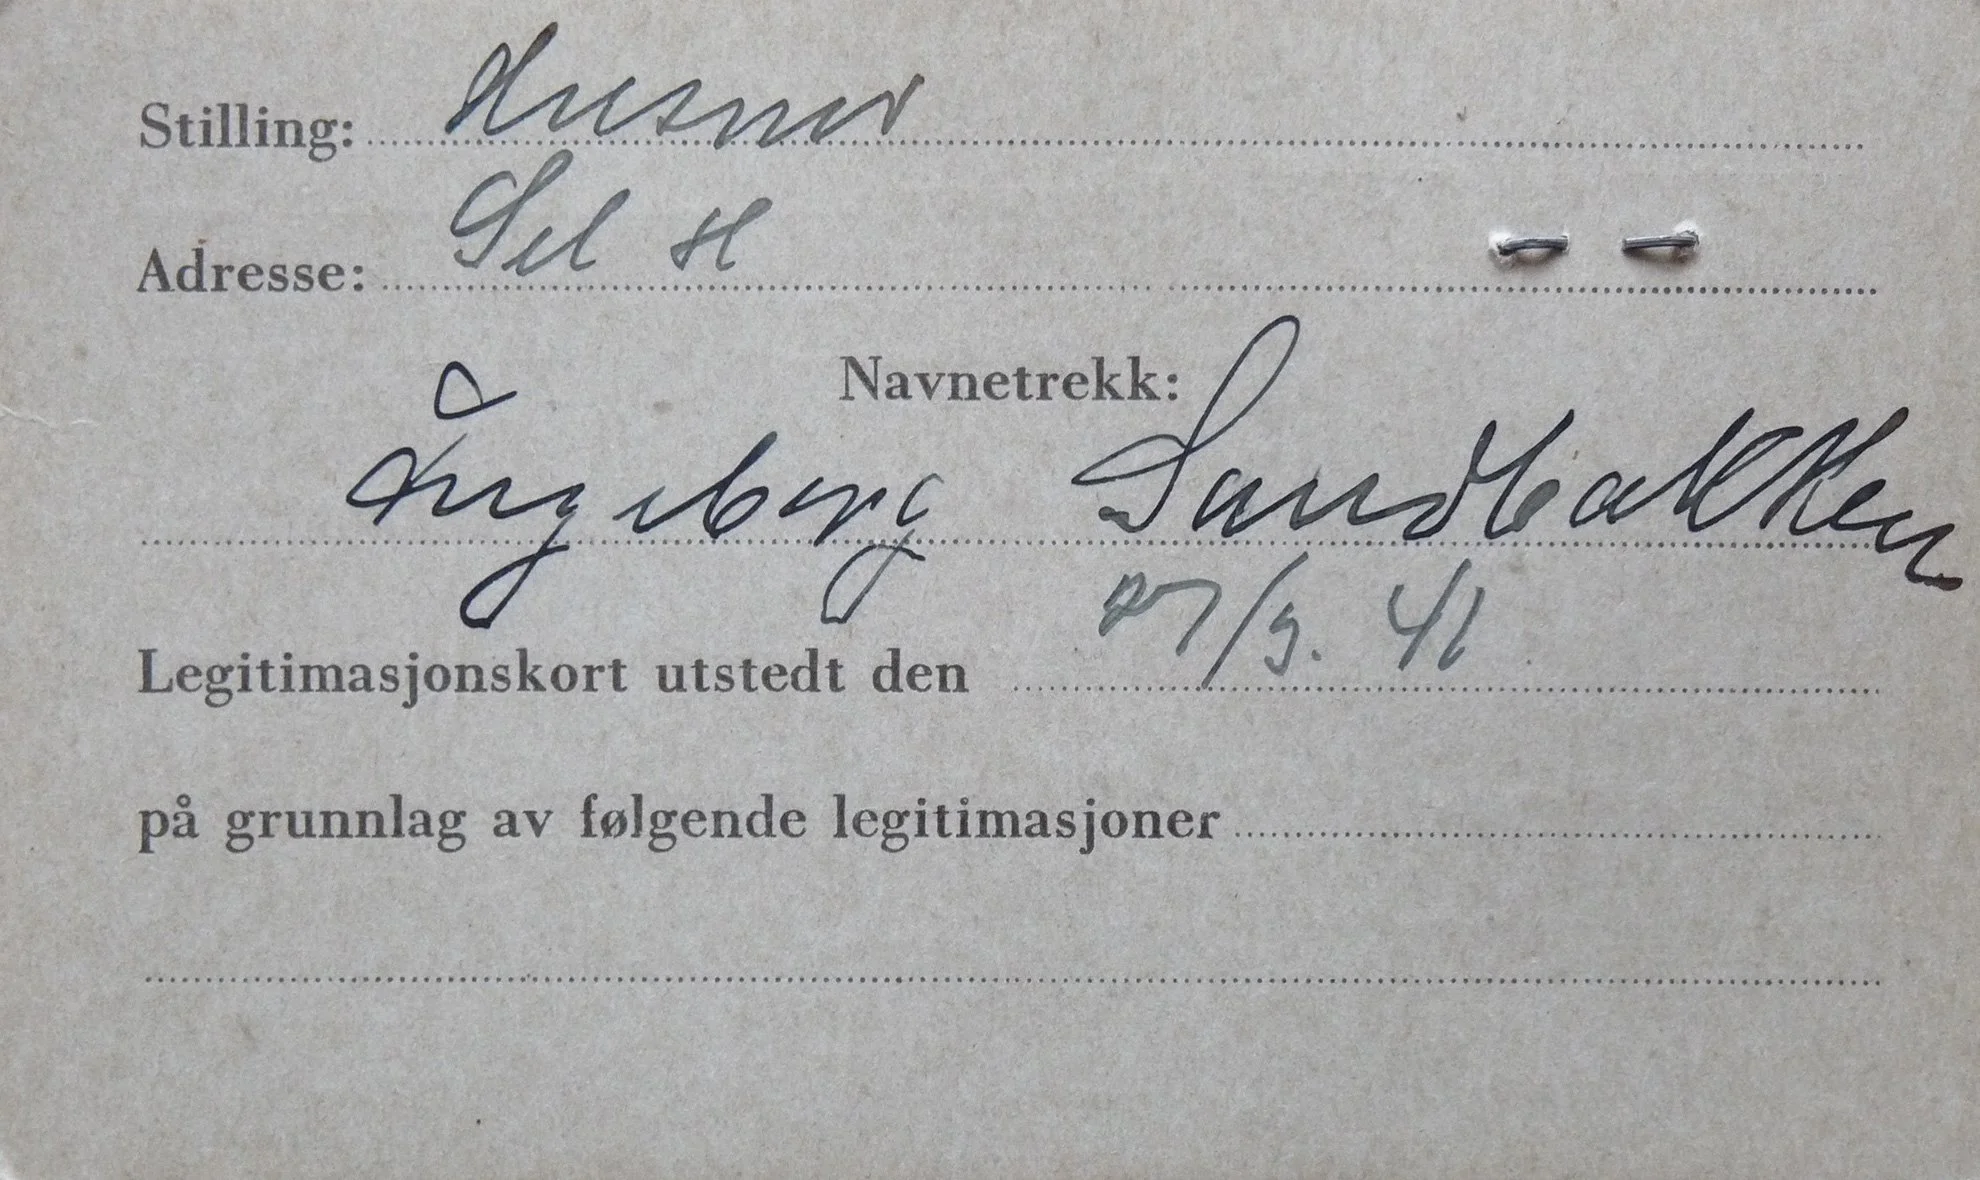 Stilling: Husmor
Adresse: Sel H
Navnetrekk:
Ingeborg Sandbakken
Legitimasjonskort utstedt den 27/9. 41
på grunnlag av følgende legitimasjoner